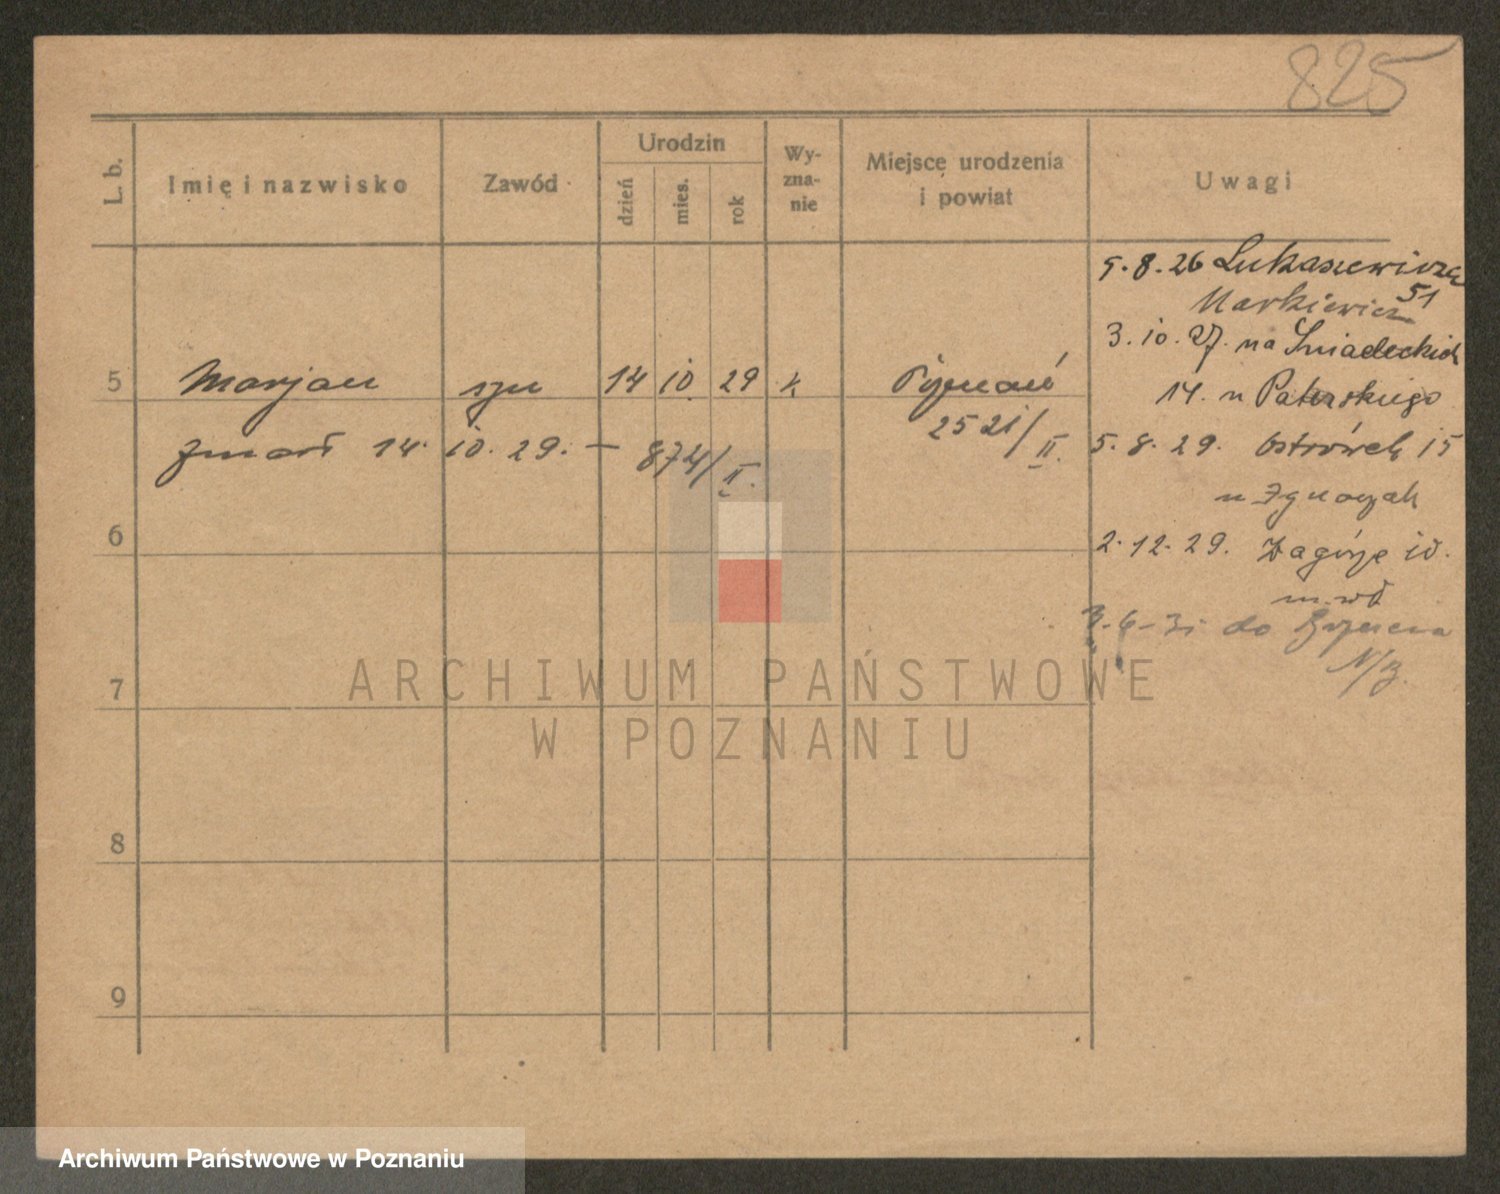 825
L. b.
Imię i nazwisko
Zawód
Urodzin
dzień
mies.
rok
Wy-
zna-
nie
Miejsce urodzenia
i powiat
Uwagi
5.8.26 Łukaszewicza
51
Markiewicz
3.10.27. na Śniadeckich
14. u Paterskiego
5 Marjan syn 14 10 29 k Poznań
2521/II.
zmarł 14. 10. 29. — 874/II.
5.8.29. Ostrówek 15
u
2.12.29. Zagórze 10.
3.6-31 do
6
7
8
9
ARCHIWUM PAŃSTWOWE
W POZNANIU
Archiwum Państwowe w Poznaniu